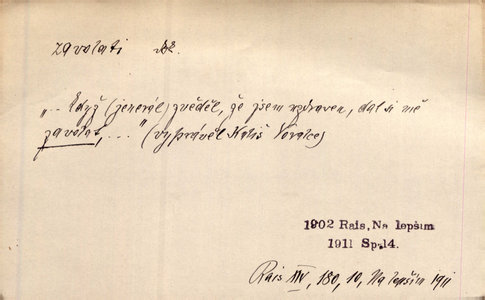 zavolati dk.
„.. Když (jenerál) zvěděl, že jsem uzdraven, dal si mě
zavolat, ..." (vyprávěl Matiš Novotce)
1902 Rais, Na lepším
1911 Sp.14.
Rais XIV, 180, 10, Na lepším 1911